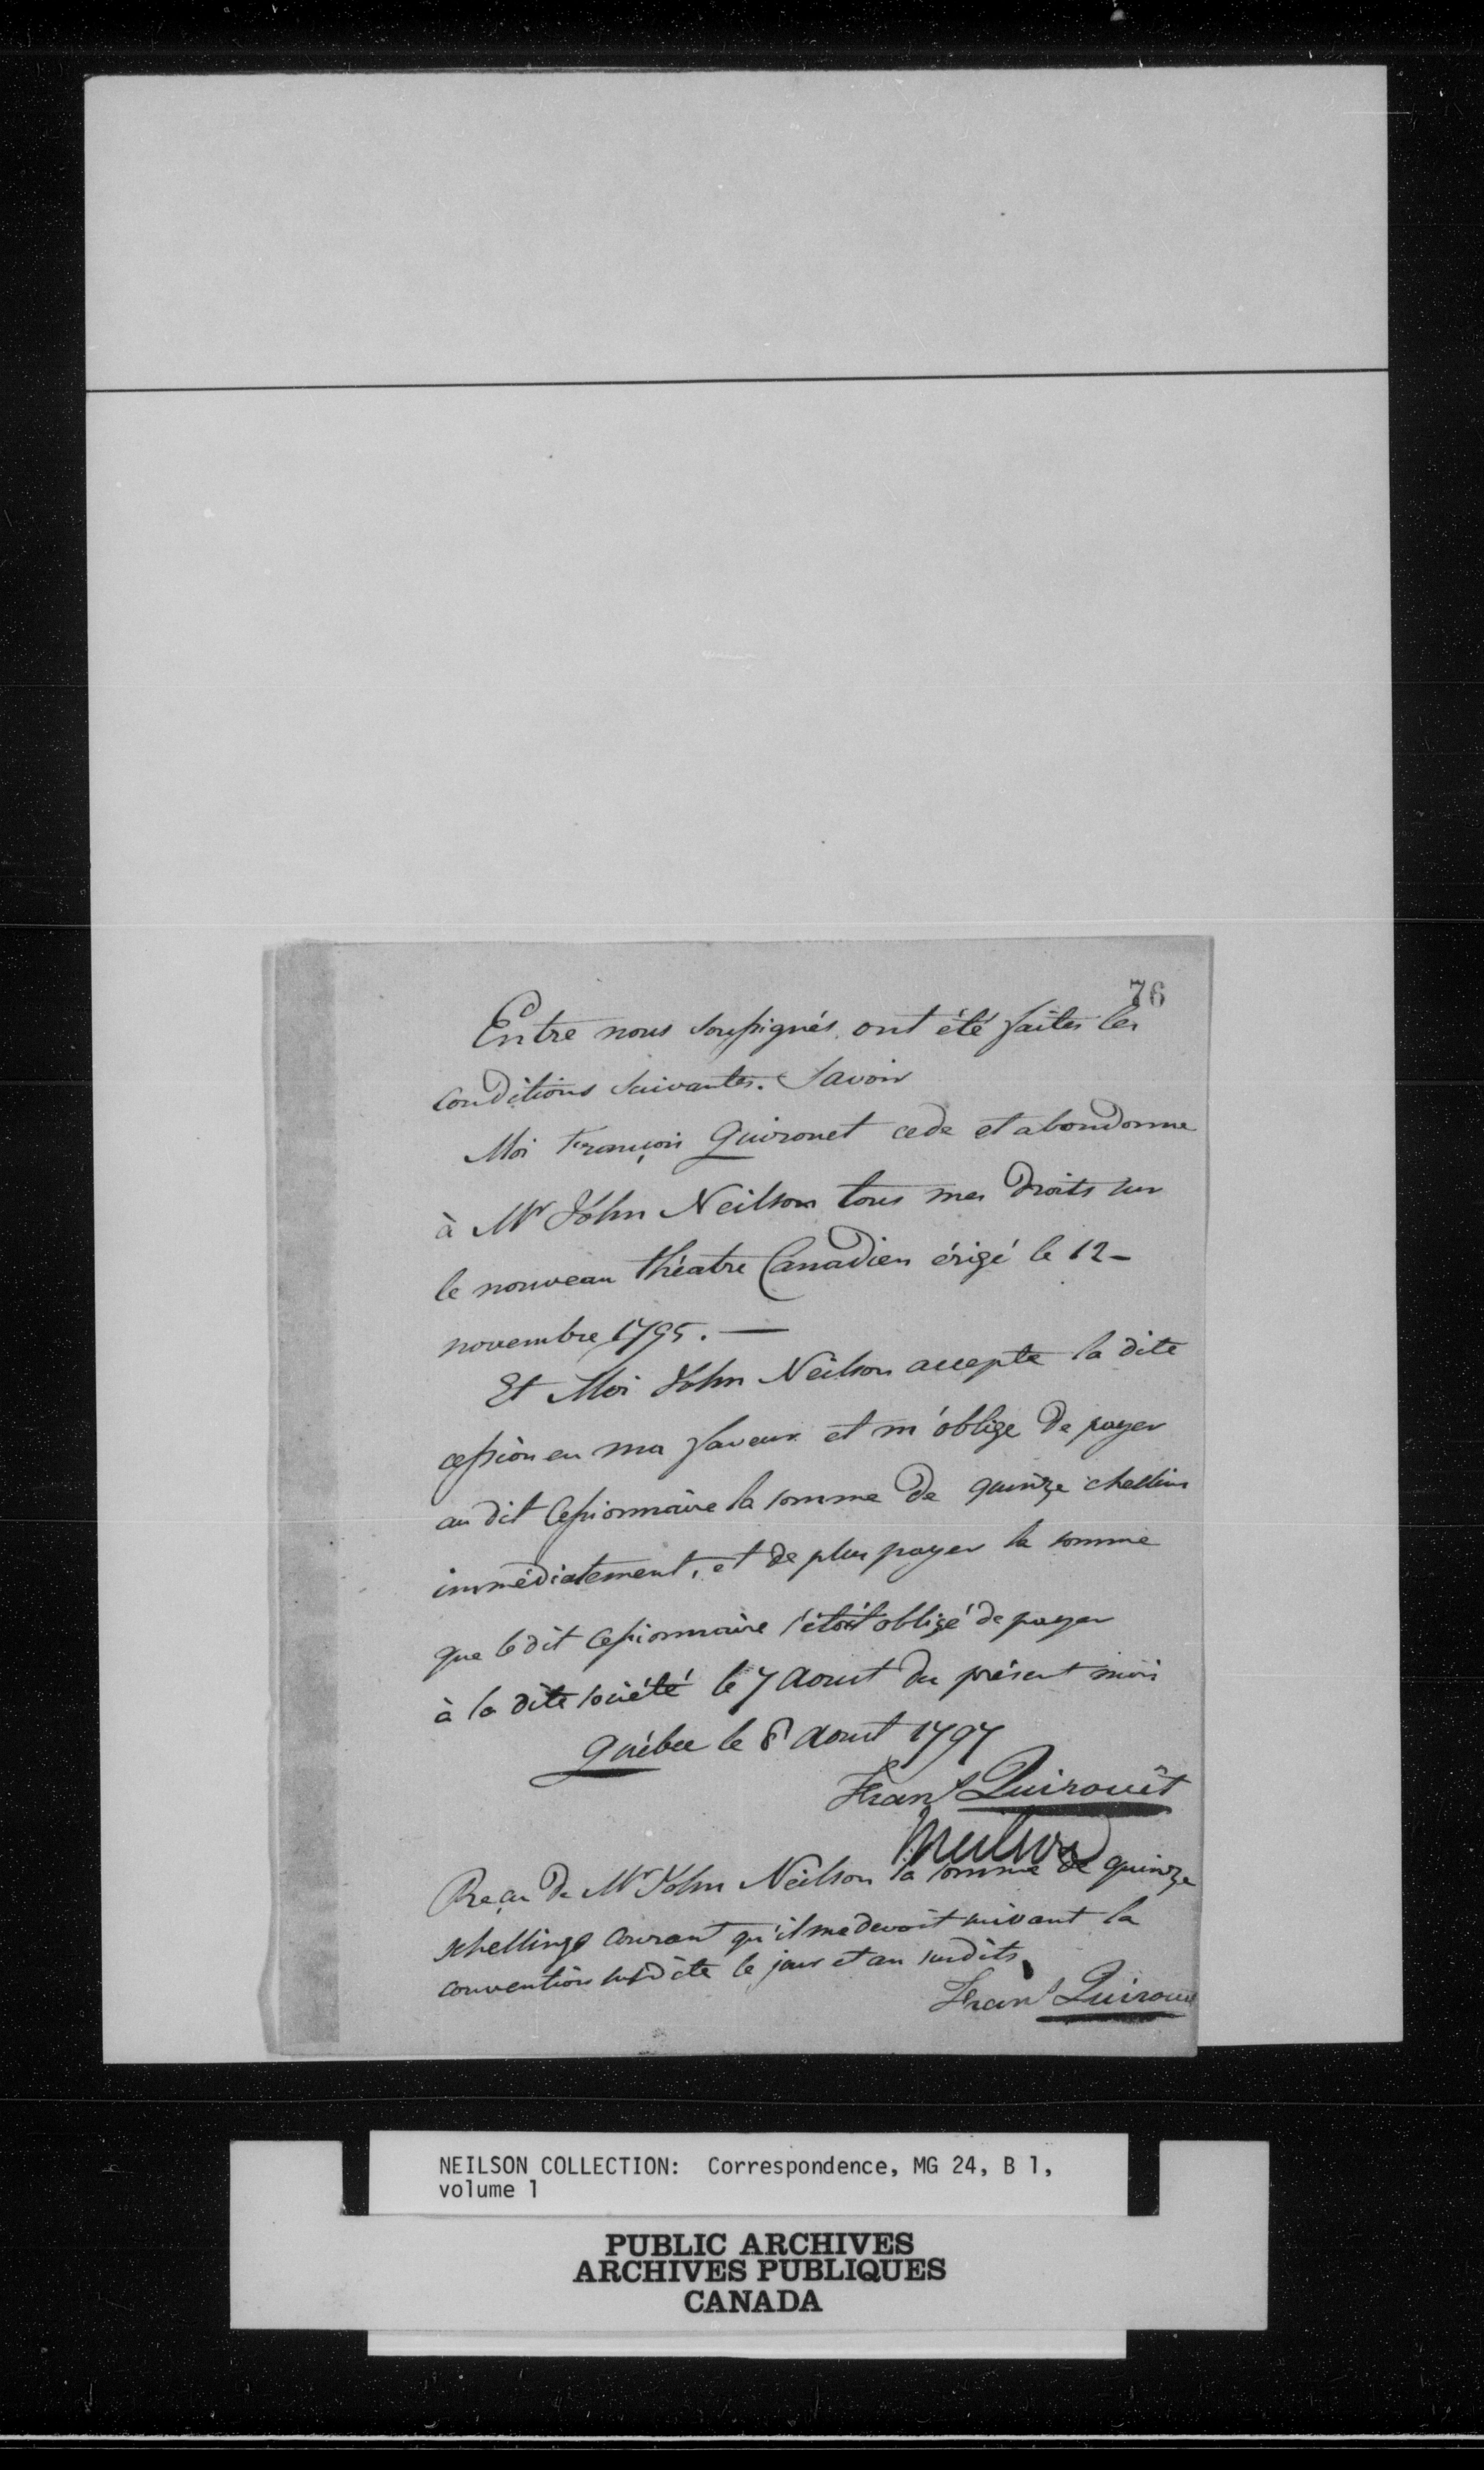 76
Entre nous soussignés ont été faites les
conditions suivantes. Savoir
Moi François Quirouet cede et abandonne
à Mr John Neilson tous mes droits sur
le nouveau théatre Canadien érigé le 12 –
novembre 1795. —
Et Moi John Neilson accepte la dite
cession en ma faveur et m'oblige de payer
au dit Cessionnaire la somme de quinze chellins
immédiatement, et de plus payer la somme
que le dit Cessionnaire s'étoit obligé de payer
à la dite société le 7 Aoust du présent mois
Québec le 8 Aoust 1797
Frans Quirouêt
JNeilson
Reçu de Mr John Neilson la somme de quinze
schellings courant qu'il me devoit suivant la
convention susdite le jour et an susdits
Frans Quirouet
NEILSON COLLECTION: Correspondence, MG 24, B 1,
volume 1
PUBLIC ARCHIVES
ARCHIVES PUBLIQUES
CANADA